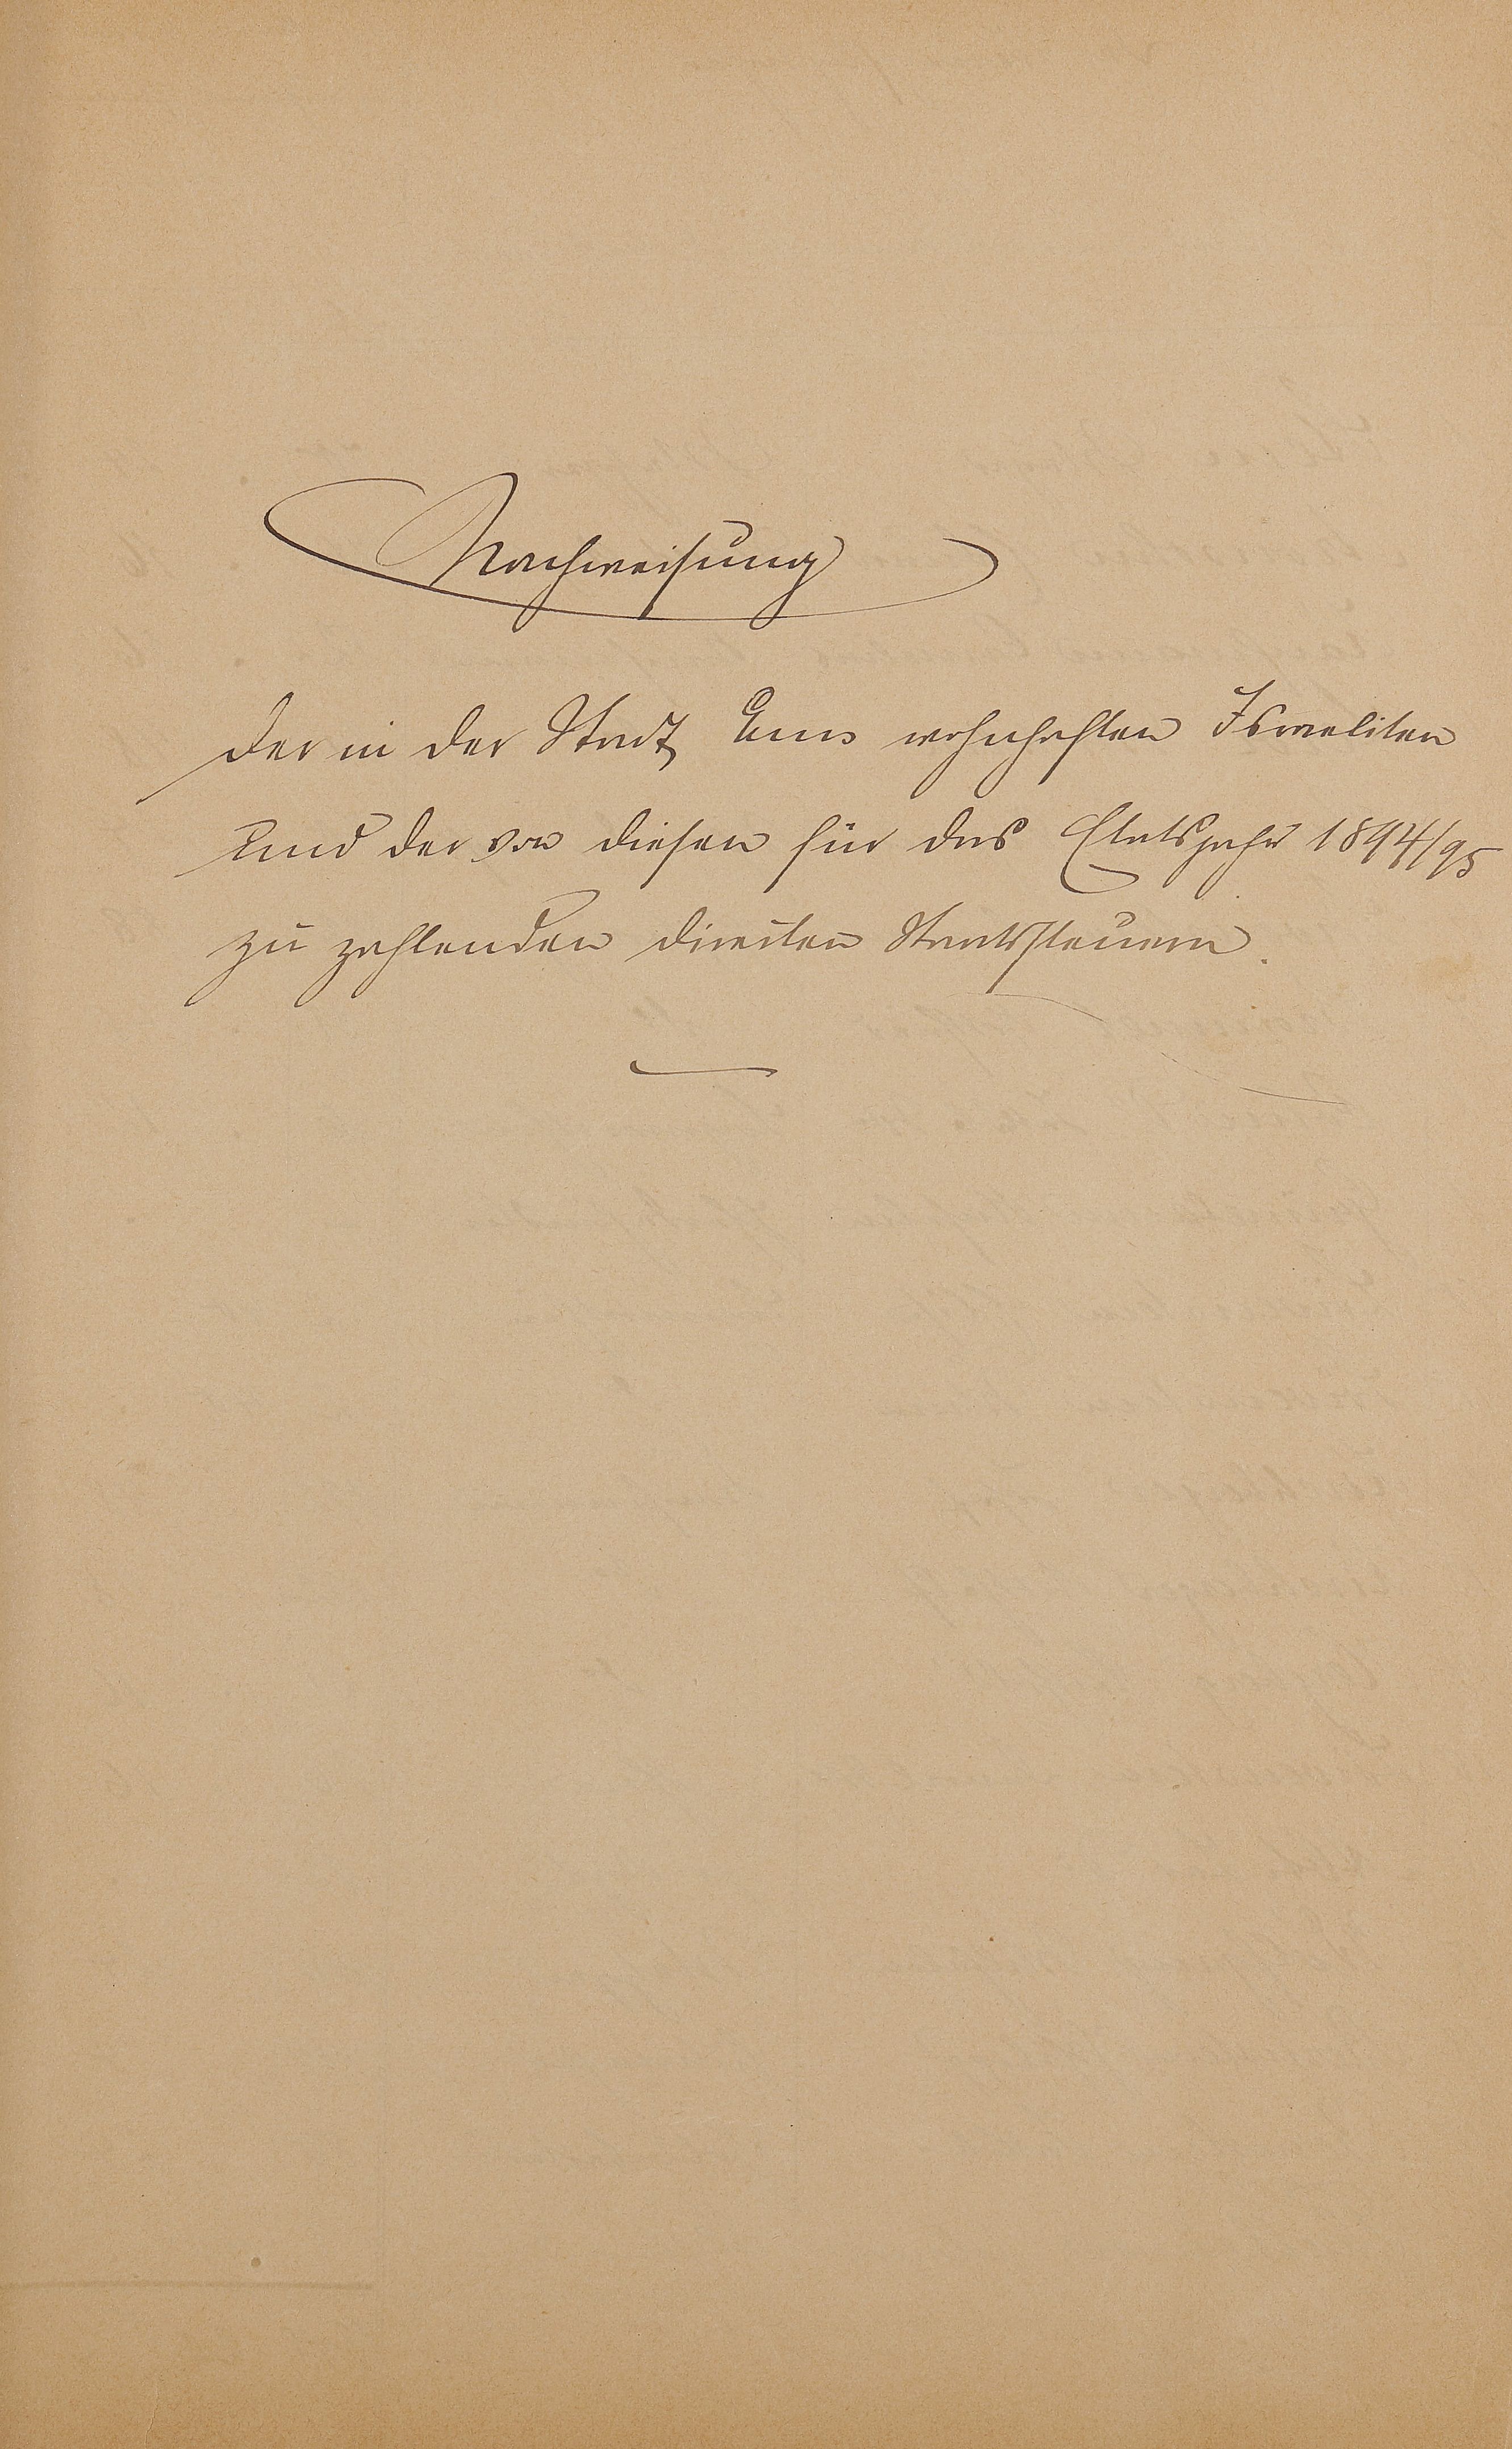 Nachweisung
der in der Stadt Ems wohnhaften Israeliten
und der von diesen für das Etatsjahr 1894/95
zu zahlenden directen Staatssteuern.